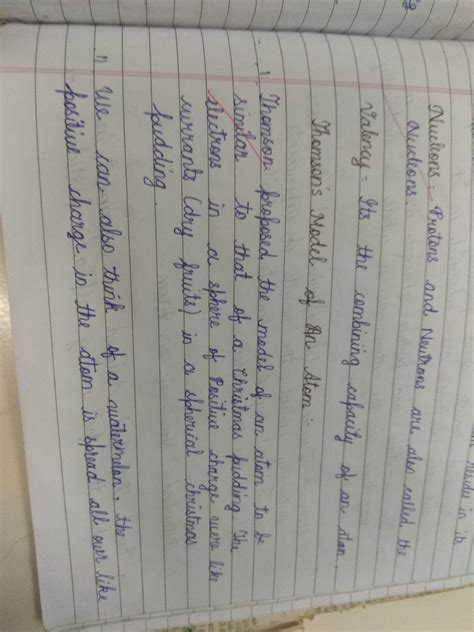 Nucleons :- Protons and Neutrons are also called the
nucleons
Valency = Its the combining capacity of an atom
Thomson's Model of An Atom :-
1. Thomson proposed the model of an atom to be
similar to that of a Christmas pudding. The
electrons in a sphere of Positive charge were like
currants (dry fruits) in a spherical christmas
pudding.
We can also think of a watermelon, the
positive charge in the atom is spread all over like